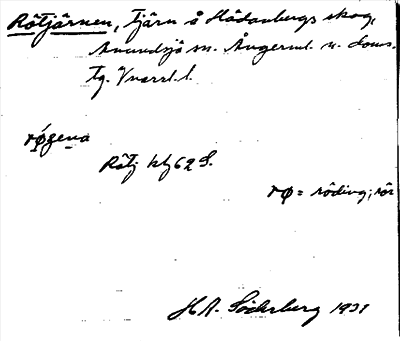 Rötjärnen, tjärn å Hädanbergs skog,
Anundsjö sn. Ångerml. n. doms.
tg. Vnorrl. l.
Rötj ktj 62 S.
rø = röding; rör
H A. Söderberg 1931